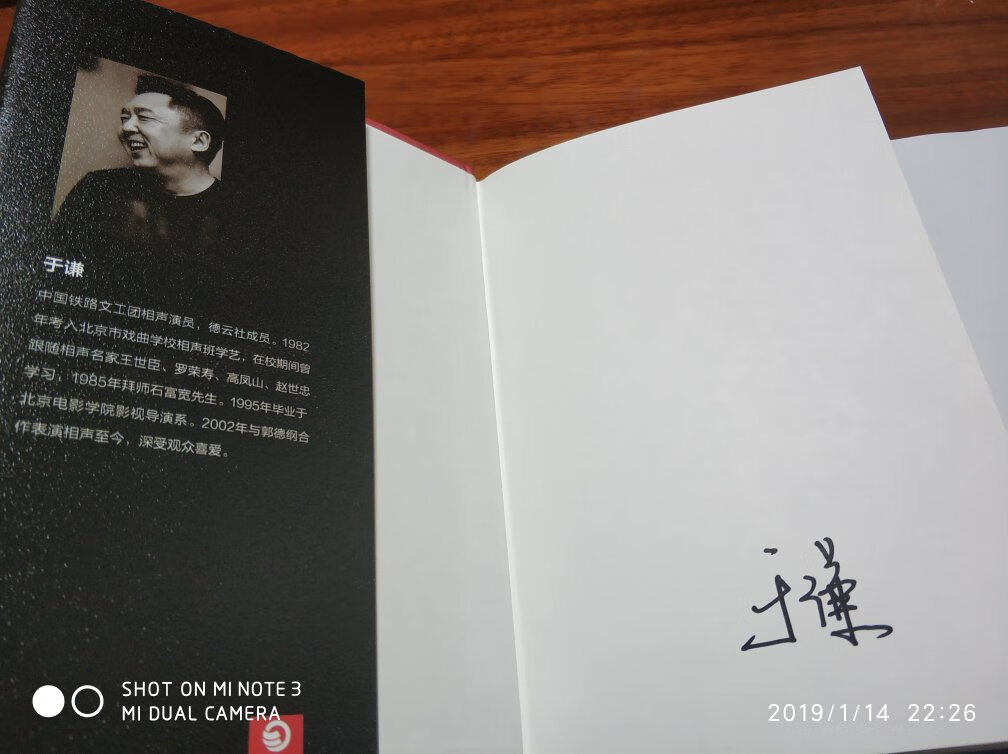 于谦
中国铁路文工团相声演员，德云社成员。1982
年考入北京市戏曲学校相声班学艺，在校期间曾
跟随相声名家王世臣、罗荣寿、高凤山、赵世忠
学习，1985年拜师石富宽先生。1995年毕业于
北京电影学院影视导演系。2002年与郭德纲合
作表演相声至今，深受观众喜爱。
于谦
SHOT ON MI NOTE 3
MI DUAL CAMERA
2019/1/14 22:26